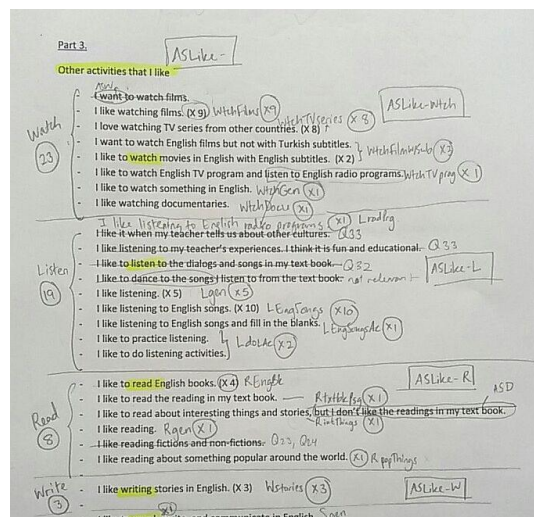 Part 3.
ASLike-
Other activities that I like
I want to watch films.
I like watching films. (X 9) WtchFilms X9
ASLike-Wtch
I love watching TV series from other countries. (X 8) WtchTVseries X 8
I want to watch English films but not with Turkish subtitles.
Watch
23
I like to watch movies in English with English subtitles. (X 2)
I like to watch English TV program and listen to English radio programs. WtchTVprog X 1
I like to watch something in English. WtchGen X1
I like watching documentaries. WtchDocu X1
I like listening to English radio programs X1
I like it when my teacher tells us about other cultures. Q33
I like listening to my teacher's experiences. I think it is fun and educational. Q33
Listen
19
I like to listen to the dialogs and songs in my text book. Q32
ASLike-L
I like to dance to the songs I listen to from the text book. not relevant
I like listening. (X 5) Lgen X5
I like listening to English songs. (X 10) LEngSongs X10
I like listening to English songs and fill in the blanks. LEngSongsAc X1
I like to practice listening.
LdoLAc X2
I like to do listening activities.
ASLike-R
I like to read English books. (X 4) REngBk
ASD
I like to read the reading in my text book. X1
I like to read about interesting things and stories, but I don't like the readings in my text book.
Read
8
I like reading. Rgen X1
RintThings X1
I like reading fictions and non-fictions. Q23, Q24
I like reading about something popular around the world. X1 RpopThings
Write
3
I like writing stories in English. (X 3) Wstories X3
ASLike-W
X1